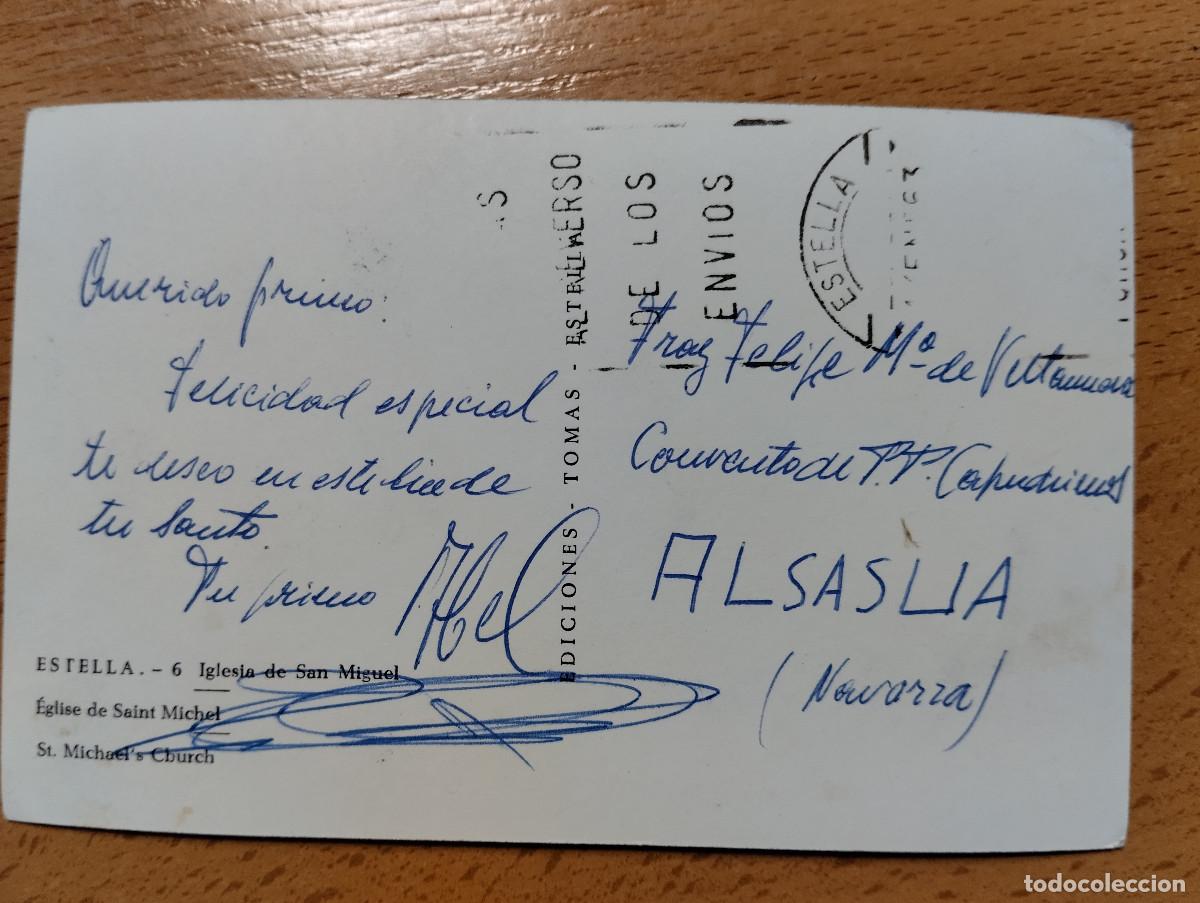 Querido primo:
Felicidad especial
te deseo en este día de
tu Santo.
Tu primo
ESTELLA. - 6 Iglesia de San Miguel
Église de Saint Michel
St. Michael's Church
EDICIONES - TOMAS - ESTELLA
AL DORSO
DE LOS
ENVIOS
ESTELLA
Fray Felipe Mª de
Convento de P.P. Capuchinos
ALSASUA
(Navarra)
todocoleccion